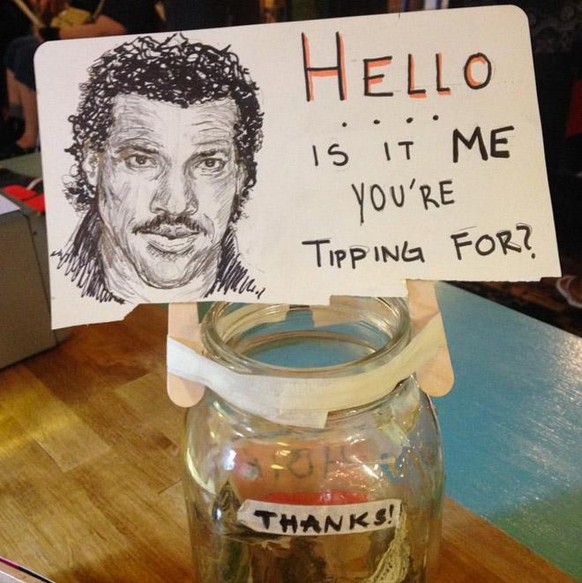 HELLO
....
IS IT ME
YOU'RE
TIPPING FOR?
THANKS!